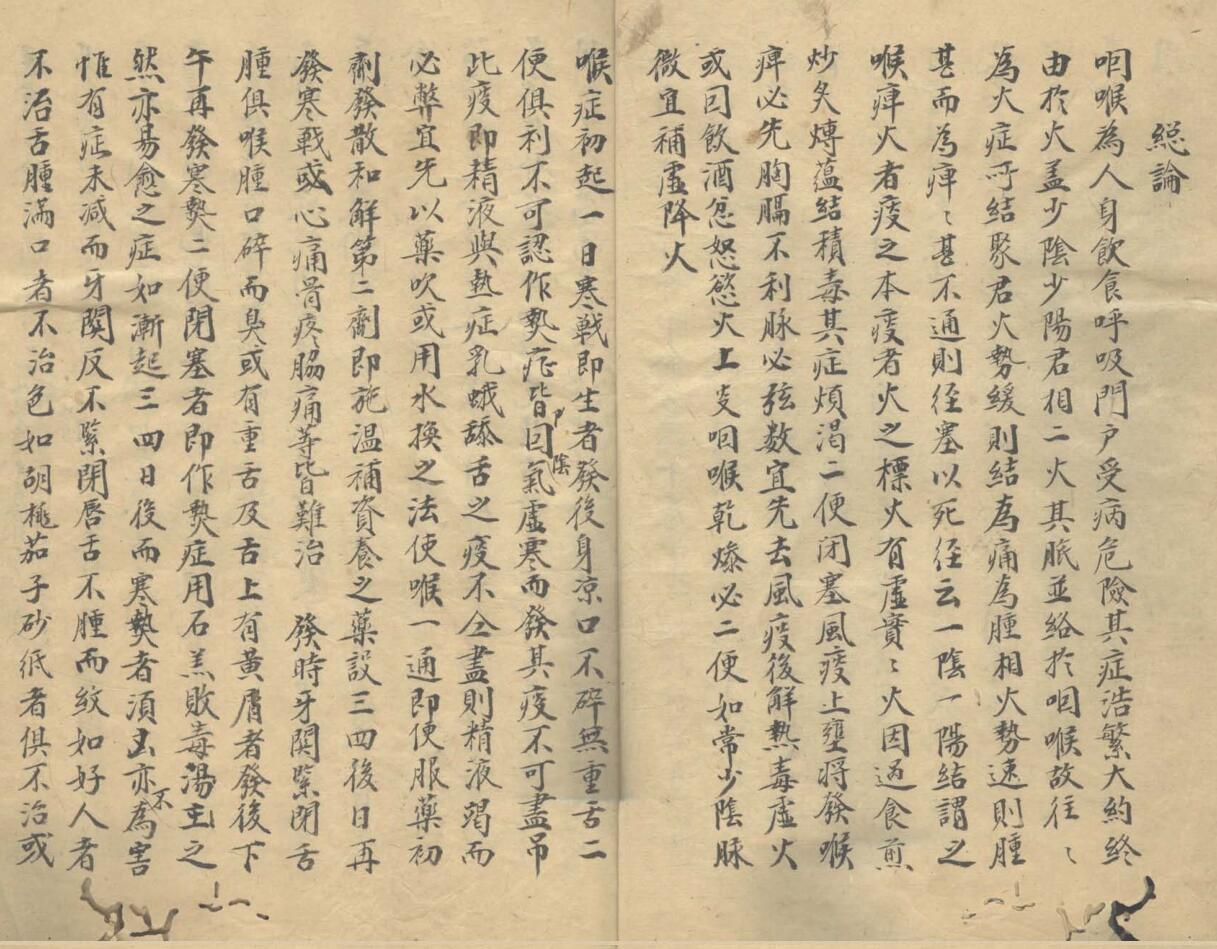 総論
咽喉為人身飲食呼吸門户受病危險其症浩繁大約終
由於火盖少陰少陽君相二火其脈並絡於咽喉故往〻
為火症所結聚君火勢緩則結為痛為腫相火勢速則腫
甚而為痺〻甚不通則径塞以死径云一陰一陽結謂之
喉痺火者痰之本痰者火之標火有虛實〻火因過食煎
炒炙煿蘊結積毒其症煩渴二便闭塞風痰上壅將發喉
痺必先胸膈不利脉必弦数宜先去風痰後解熱毒虛火
或因飲酒忿怒慾火上炎咽喉乾燥必二便如常少陰脉
微宜補虛降火
喉症初起一日寒戰即生者發後身凉口不碎無重舌二
便俱利不可認作熱症皆因陰氣虛寒而發其痰不可盡吊
此痰即精液與熱症乳蛾舔舌之痰不仝盡則精液竭而
必弊宜先以藥吹或用水換之法使喉一通即便服藥初
劑發散和解第二劑即施温補資養之藥設三四後日再
發寒戰或心痛骨疼脇痛等皆難治　發時牙関緊閉舌
腫俱喉腫口碎而臭或有重舌及舌上有黄屑者發後下
午再發寒熱二便閉塞者即作熱症用石羔敗毒湯主之
然亦易愈之症如漸起三四日後而寒熱者須出亦不為害
惟有症未减而牙関反不緊閉唇舌不腫而紋如好人者
不治舌腫滿口者不治色如胡桃茄子砂纸者俱不治或